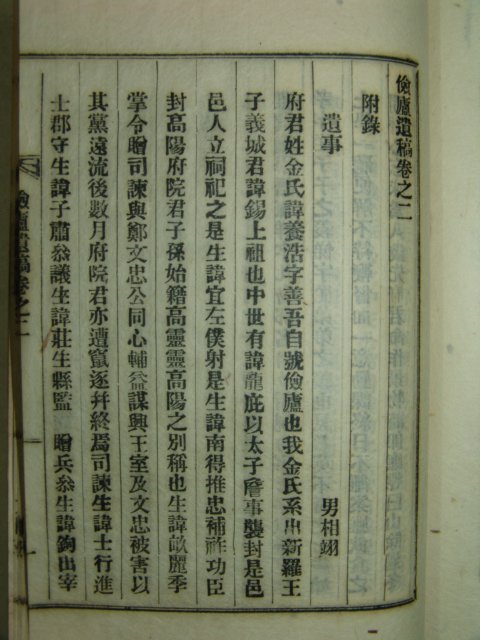 儉廬遺稿卷之二
附錄
遺事 男相翊
府君姓金氏諱養浩字善吾自號儉廬也我金氏系出新羅王
子義城君諱錫上祖也中世有諱龍庇以太子詹事襲封是邑
邑人立祠祀之是生諱宜左僕射是生諱南得推忠補祚功臣
封高陽府院君子孫始籍高靈靈高陽之別稱也生諱畝麗季
掌令贈司諫與鄭文忠公同心輔益謀興王室及文忠被害以
其黨遠流後數月府院君亦遭竄逐幷終焉司諫生諱士行進
士郡守生諱子肅叅議生諱莊生縣監 贈兵叅生諱鉤出宰
儉廬遺稿卷之二 一